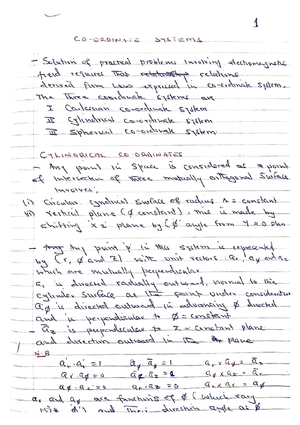 1
CO-ORDINATE SYSTEMS
- Solution of practical problems involving electromagnetic
field requires that relationship relations
derived from laws expressed in co-ordinate system.
The three coordinate systems are
I Cartesian co-ordinate system
II Cylindrical co-ordinate system
III Spherical co-ordinate system
CYLINDRICAL CO-ORDINATES
- Any point in space is considered as a point
of intersection of three mutually orthogonal surface
involves;
(i) Circular cylindrical surface of radius r = constant
(ii) vertical plane (φ constant). This is made by
shifting xz plane by (φ) angle from Y = 0 plane
- Any point p in this system is represented
by (r, φ and z) with unit vectors ar, aφ and az
which are mutually perpendicular
ar is directed radially outward, normal to the
cylinder surface at the point under consideration
aφ is directed outward in advancing φ directed
and is perpendicular to φ = constant
- az is perpendicular to z - constant plane
and direction outward in the plane
N.B
ar . ar = 1 aφ . aφ = 1 ar x aφ = az
ar . aφ = 0 az . az = 1 aφ x az = ar
aφ . az = 0 ar . az = 0 az x ar = aφ
ar and aφ are functions of φ (which vary
with φ) and their direction as φ